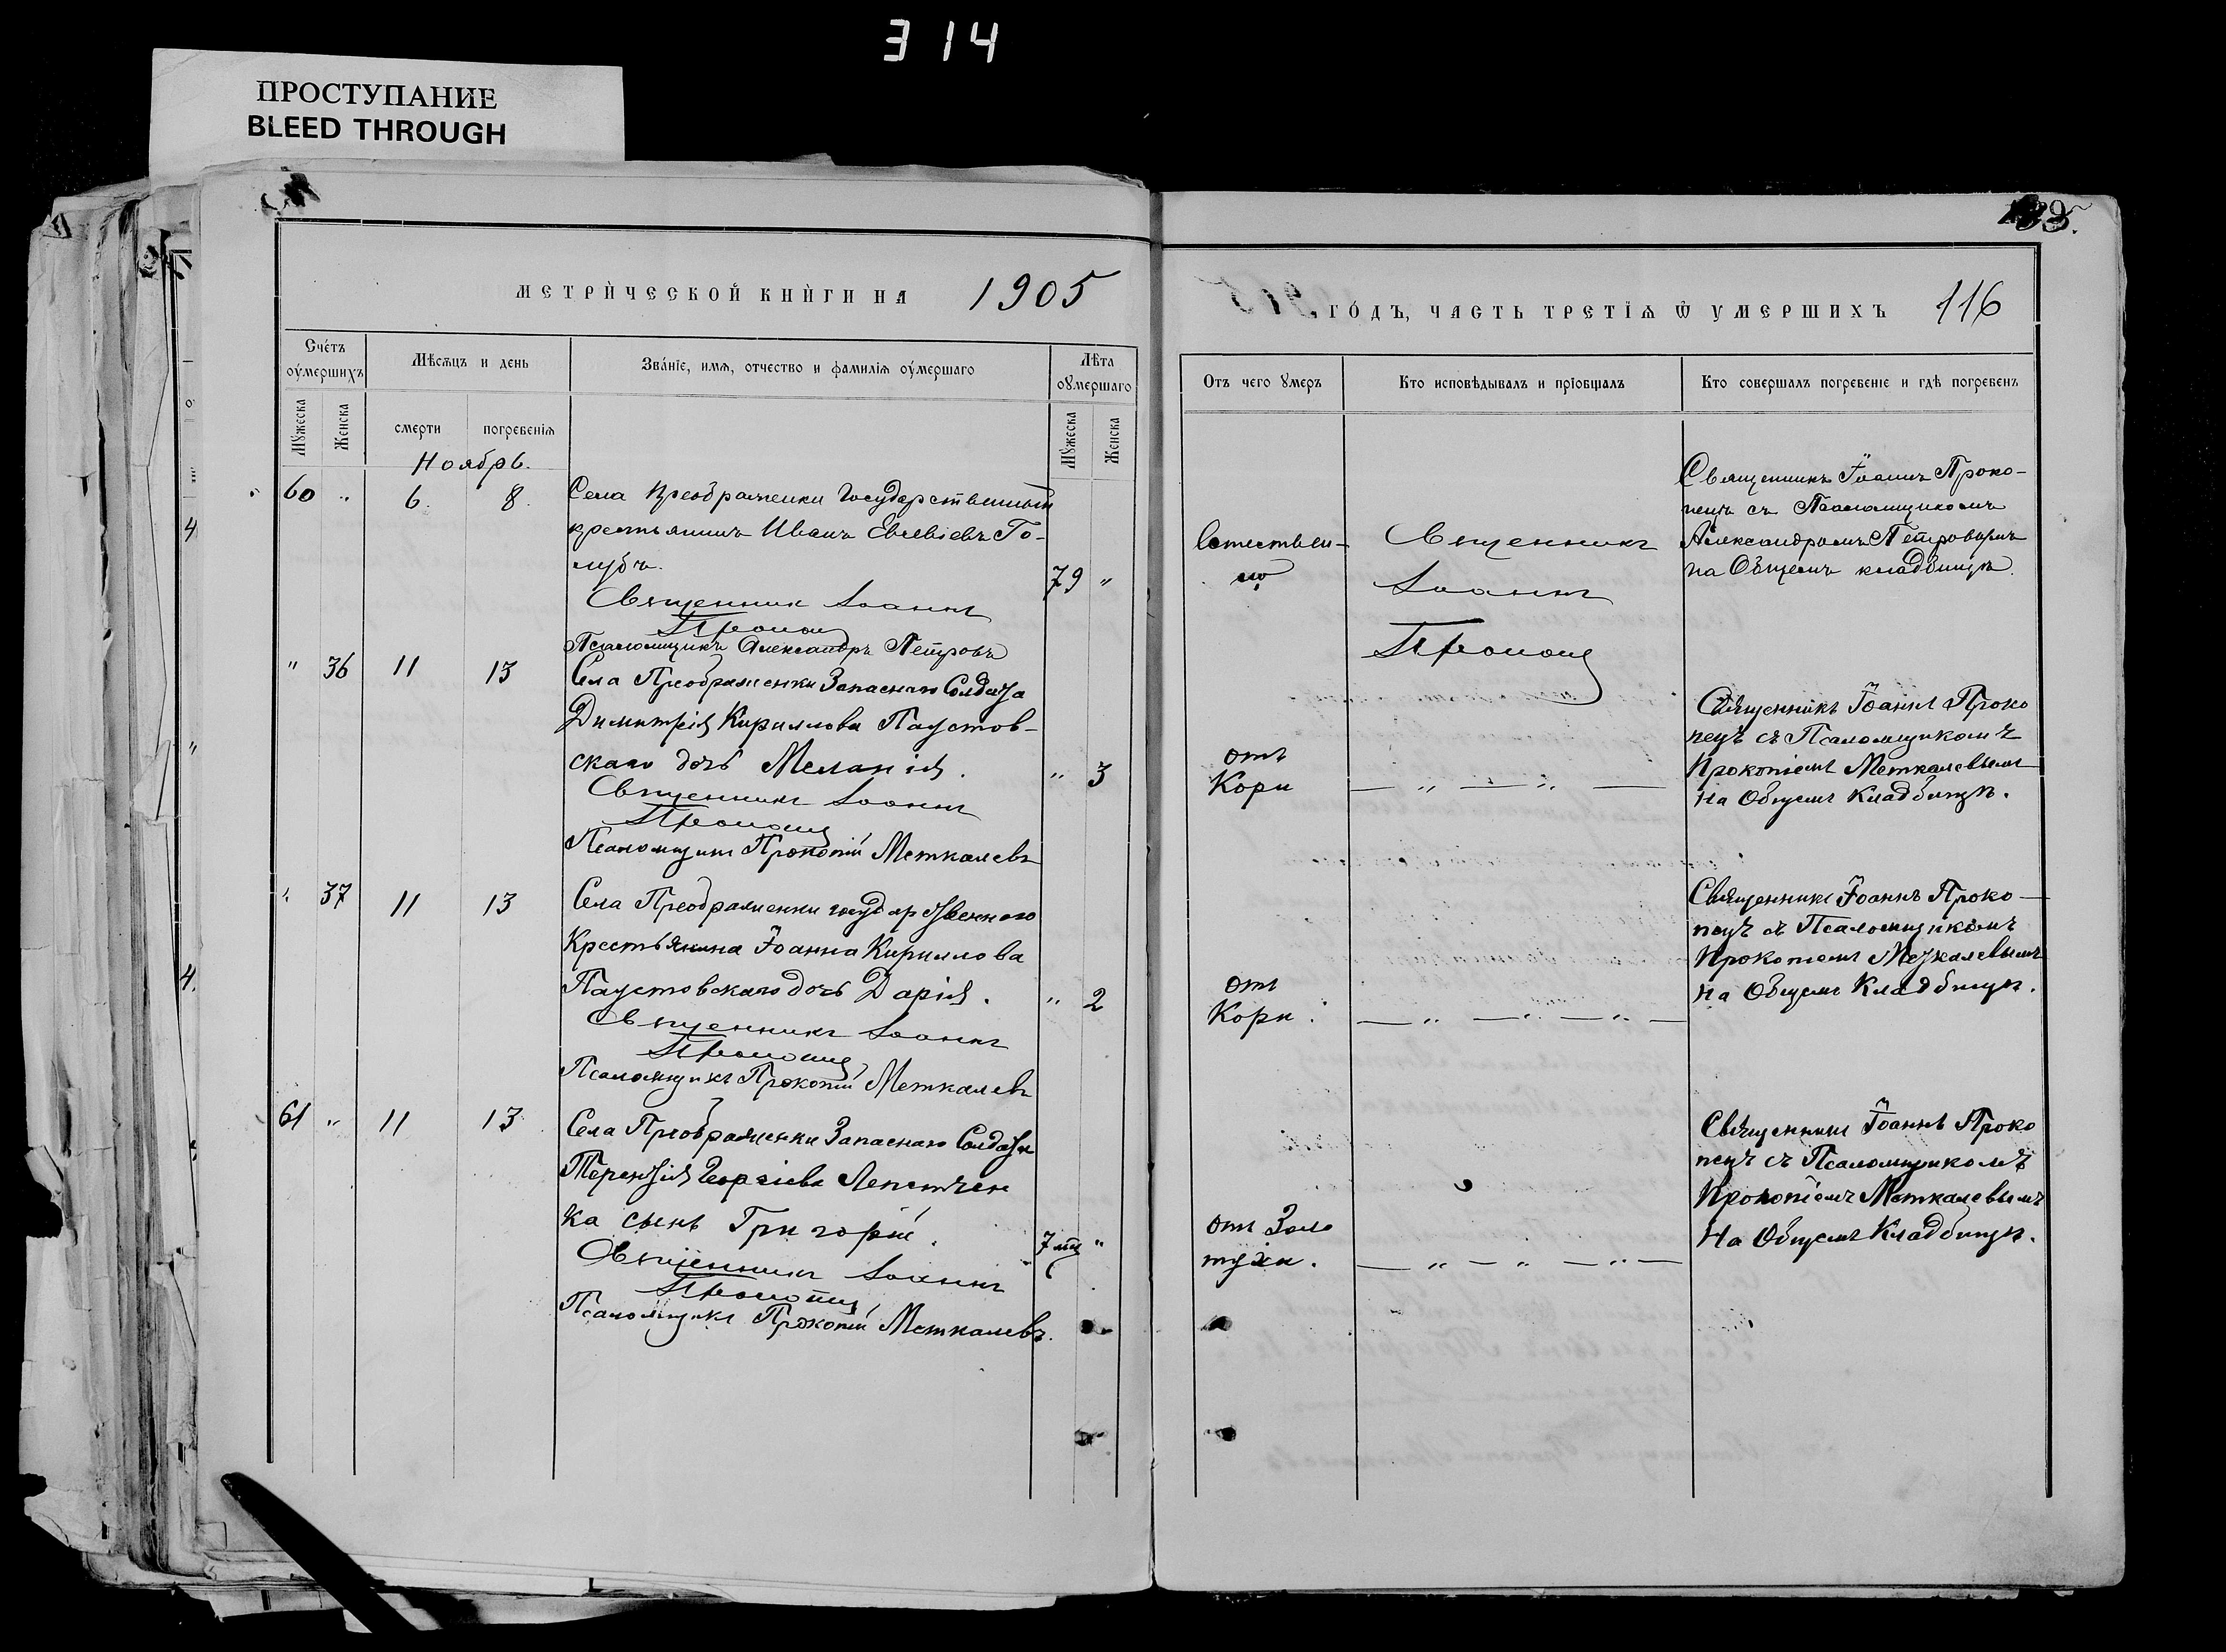 314
ПРОСТУПАНИЕ
BLEED THROUGH
МЕТРИЧЕСКОЙ КНИГИ НА 1905
Счетъ умершихъ
Мѣсяцъ и день
Званіе, имя, отчество и фамилія умершаго
Лѣта умершаго
Мужеска
Женска
смерти
погребенія
Мужеска
Женска
Ноябрь.
60 " 6. 8. Села Преображенки Государственный
крестьянинъ Иванъ Евсевіевъ Го-
лубъ.
79 "
Священникъ Іоаннъ
Прокопец
Псаломщикъ Александръ Петровъ
" 36 11 13 Села Преображенки Запаснаго Солдата
Димитрія Кириллова Паустов-
скаго дочь Меланія.
" 3
Священникъ Іоаннъ
Прокопец
Псаломщикъ Прокопій Меткалевъ
" 37 11 13 Села Преображенки государственнаго
Крестьянина Іоанна Кириллова
Паустовскаго дочь Дарія.
" 2
Священникъ Іоаннъ
Прокопец
Псаломщикъ Прокопій Меткалевъ
61 " 11 13 Села Преображенки Запаснаго Солдата
Терентія Георгіева Лепетчен
ка сынъ Григорій.
7 мц "
Священникъ Іоаннъ
Прокопец
Псаломщикъ Прокопій Меткалевъ.
ГОДЪ, ЧАСТЬ ТРЕТІЯ Ѿ УМЕРШИХЪ 116
Отъ чего умеръ
Кто исповѣдывалъ и пріобщалъ
Кто совершалъ погребеніе и гдѣ погребенъ
Естествен-
но
Священникъ
Іоаннъ
Прокопец
Священникъ Іоаннъ Проко-
пецъ съ Псаломщикомъ
Александромъ Петровымъ
на Общемъ кладбищѣ.
отъ
Кори
— " — " —
Священникъ Іоаннъ Проко
пецъ съ Псаломщикомъ
Прокопіемъ Меткалевымъ
на Общемъ Кладбищѣ.
отъ
Кори.
— " — " — " —
Священникъ Іоаннъ Проко-
пецъ съ Псаломщикомъ
Прокопіемъ Меткалевымъ
на Общемъ Кладбищѣ.
отъ Золо
тухи.
— " — " — " —
Священникъ Іоаннъ Проко
пецъ съ Псаломщикомъ
Прокопіемъ Меткалевымъ
На Общемъ Кладбищѣ.